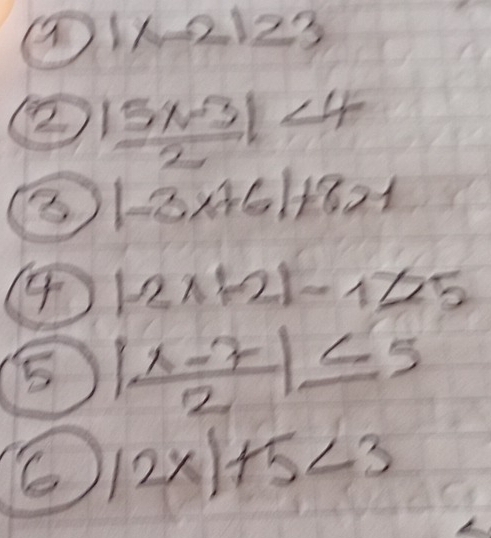 ① |x-2|≥3
② |5x-3/2| <4
③ |-3x+6|+8>1
④ |-2x+2|-1≥5
⑤ |x-7/2| ≤5
⑥ |2x|+5<3